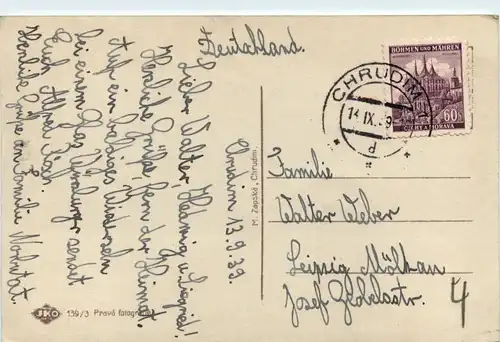 Deutschland.
BÖHMEN UND MÄHREN
60
ČECHY A MORAVA
CHRUDIM
14 IX. 39
d
Chrudim 13.9.39.
Lieber Walter, Hedwig u. Siegfried!
Herzliche Grüße, fern der Heimat.
Auf ein baldiges Wiedersehn
bei einem Glas Würzburger sendet
Euch Alfred
Herzliche Grüße an Familie
M. Zapská, Chrudim.
Familie
Walter Weber
Leipzig Mölkau
Josef
4
JKO
139/3 Pravá fotografie